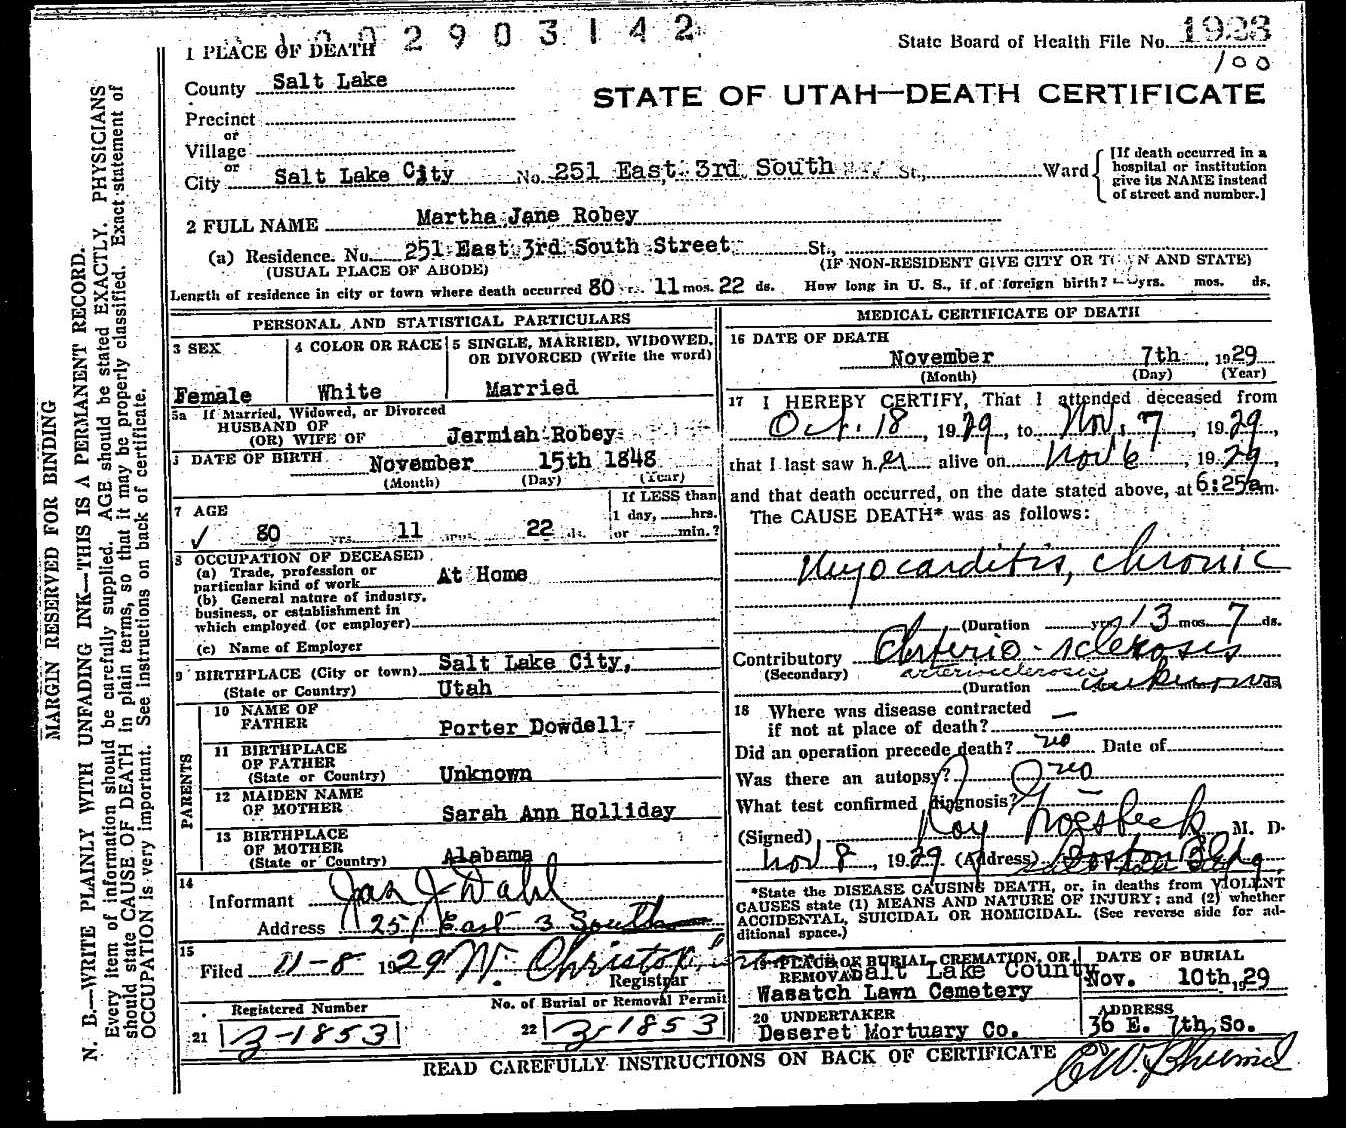 1002903142
State Board of Health File No. 1923
100
1 PLACE OF DEATH
County Salt Lake
STATE OF UTAH—DEATH CERTIFICATE
Precinct
or
Village
or
City Salt Lake City No. 251 East 3rd South St., Ward
[If death occurred in a
hospital or institution
give its NAME instead
of street and number.]
2 FULL NAME Martha Jane Robey
(a) Residence. No. 251 East 3rd South Street St.,
(USUAL PLACE OF ABODE) (IF NON-RESIDENT GIVE CITY OR TOWN AND STATE)
Length of residence in city or town where death occurred 80 yrs. 11 mos. 22 ds. How long in U. S., if of foreign birth? -- yrs. mos. ds.
PERSONAL AND STATISTICAL PARTICULARS
3 SEX
Female
4 COLOR OR RACE
White
5 SINGLE, MARRIED, WIDOWED,
OR DIVORCED (Write the word)
Married
5a If Married, Widowed, or Divorced
HUSBAND OF
(OR) WIFE OF Jermiah Robey
DATE OF BIRTH November 15th 1848
(Month) (Day) (Year)
7 AGE
80 yrs. 11 mos. 22 ds.
If LESS than
1 day, hrs.
or min.?
8 OCCUPATION OF DECEASED
(a) Trade, profession or
particular kind of work At Home
(b) General nature of industry,
business, or establishment in
which employed (or employer)
(c) Name of Employer
9 BIRTHPLACE (City or town) Salt Lake City,
(State or Country) Utah
PARENTS
10 NAME OF
FATHER Porter Dowdell
11 BIRTHPLACE
OF FATHER
(State or Country) Unknown
12 MAIDEN NAME
OF MOTHER Sarah Ann Holliday
13 BIRTHPLACE
OF MOTHER
(State or Country) Alabama
14
Informant Jas J. Dahl
Address 251 East 3 South
15
Filed 11-8 1929 W. Christo
Registrar
Registered Number
21 3-1853
No. of Burial or Removal Permit
22 3-1853
MEDICAL CERTIFICATE OF DEATH
16 DATE OF DEATH
November 7th, 1929
(Month) (Day) (Year)
17 I HEREBY CERTIFY, That I attended deceased from
Oct. 18, 1929, to Nov. 7, 1929,
that I last saw her alive on Nov 6, 1929,
and that death occurred, on the date stated above, at 6:25 a m.
The CAUSE DEATH* was as follows:
Myocarditis, chronic
(Duration yrs. 3 mos. 7 ds.
Contributory Arterio-sclerosis
(Secondary) arteriosclerosis
(Duration unknown ds
18 Where was disease contracted
if not at place of death? —
Did an operation precede death? no Date of
Was there an autopsy? no
What test confirmed diagnosis? —
(Signed) Roy Groesbeck M. D.
Nov 8, 1929 (Address) Boston Bldg,
*State the DISEASE CAUSING DEATH, or, in deaths from VIOLENT
CAUSES state (1) MEANS AND NATURE OF INJURY; and (2) whether
ACCIDENTAL, SUICIDAL OR HOMICIDAL. (See reverse side for ad-
ditional space.)
19 PLACE OF BURIAL, CREMATION, OR
REMOVAL Salt Lake County
Wasatch Lawn Cemetery
DATE OF BURIAL
Nov. 10th, 1929
20 UNDERTAKER
Deseret Mortuary Co.
ADDRESS
36 E. 7th, So.
READ CAREFULLY INSTRUCTIONS ON BACK OF CERTIFICATE
MARGIN RESERVED FOR BINDING
N. B.—WRITE PLAINLY WITH UNFADING INK—THIS IS A PERMANENT RECORD.
Every item of information should be carefully supplied. AGE should be stated EXACTLY. PHYSICIANS
should state CAUSE OF DEATH in plain terms, so that it may be properly classified. Exact statement of
OCCUPATION is very important. See instructions on back of certificate.